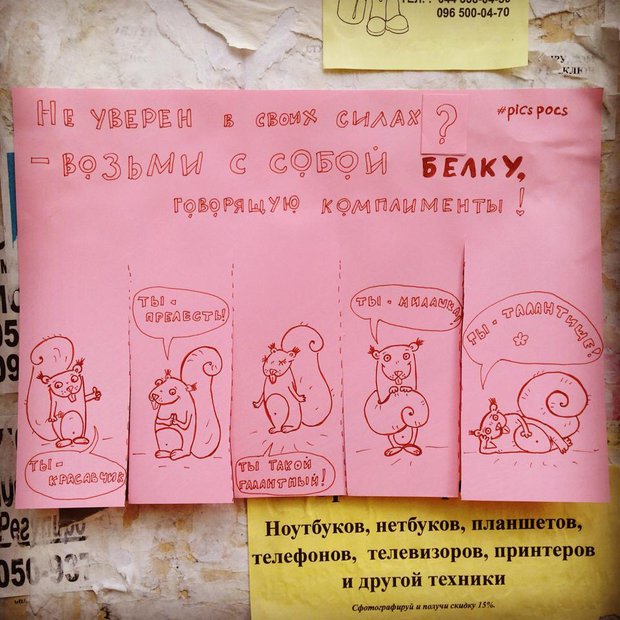 096 500-04-70
НЕ УВЕРЕН В СВОИХ СИЛАХ?
#picspocs
- ВОЗЬМИ С СОБОЙ БЕЛКУ,
ГОВОРЯЩУЮ КОМПЛИМЕНТЫ!
ТЫ -
КРАСАВЧИК
ТЫ -
ПРЕЛЕСТЬ!
ТЫ ТАКОЙ
ГАЛАНТНЫЙ!
ТЫ - МИЛАШКА!
ТЫ - ТАЛАНТИЩЕ!
05
09
050-937
Ноутбуков, нетбуков, планшетов,
телефонов, телевизоров, принтеров
и другой техники
Сфотографируй и получи скидку 15%.